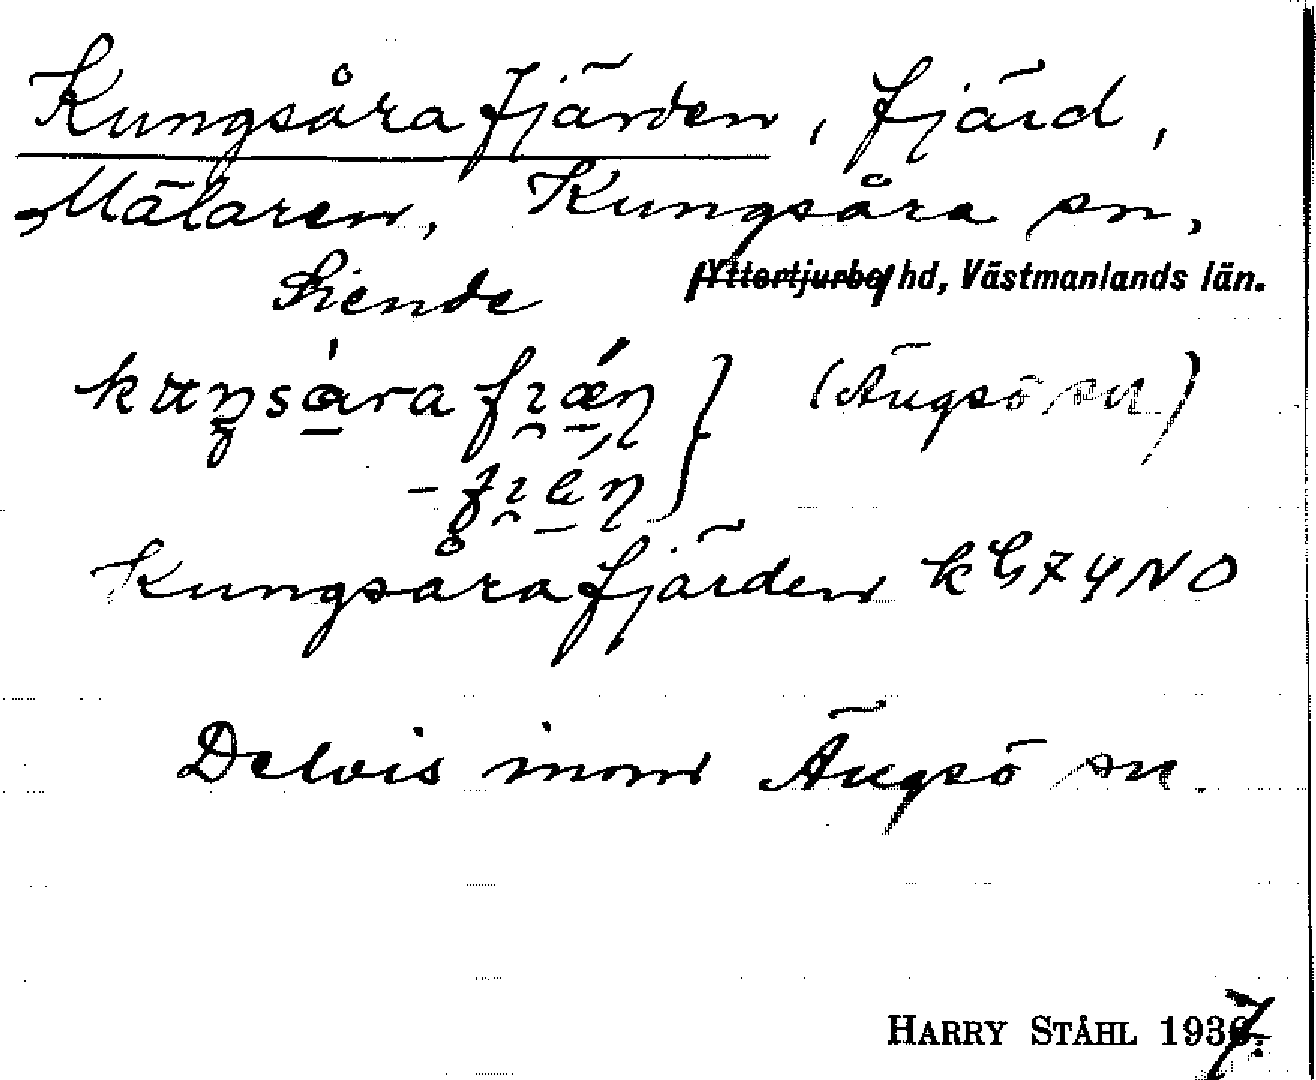 Kungsårafjärden, fjärd,
Mälaren, Kungsåra sn,
Siende Yttertjurbo hd, Västmanlands län.
(Ängsö sn)
Kungsårafjärden kG74NO
Delvis inom Ängsö sn.
HARRY STÅHL 1937.